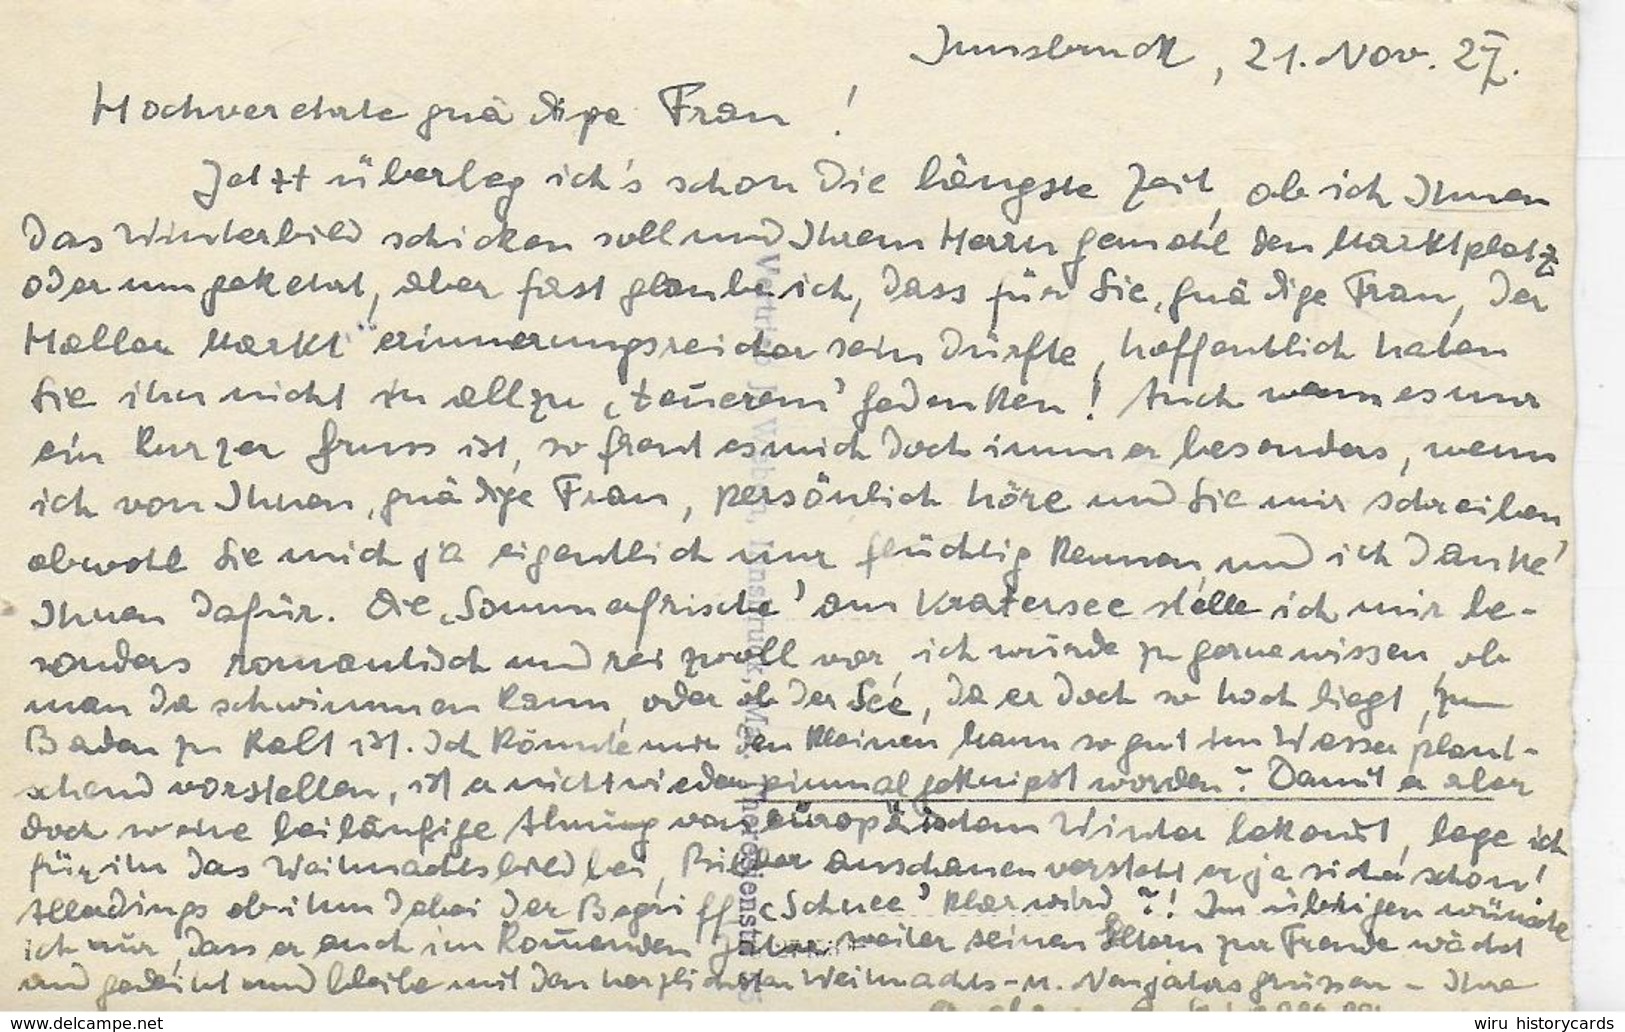 Innsbruck, 21. Nov. 27.
Hochverehrte gnädige Frau!
Jetzt überleg ich's schon die längste Zeit, ob ich Ihnen
das Winterbild schicken soll und Ihrem Herrn Gemahl den Marktplatz
oder umgekehrt, aber fast glaube ich, dass für Sie, gnädige Frau, der
Haller Markt" erinnerungsreicher sein dürfte, hoffentlich haben
Sie ihn nicht in allzu 'teuerem' Gedenken! Auch wenn es nur
ein kurzer Gruss ist, so freut es mich doch immer besonders, wenn
ich von Ihnen, gnädige Frau, persönlich höre und Sie mir schreiben
obwohl Sie mich ja eigentlich nur flüchtig kennen, und ich danke
Ihnen dafür. Die 'Sommerfrische' am Kratersee stelle ich mir be-
sonders romantisch und reizvoll vor, ich würde zu gerne wissen, ob
man da schwimmen kann, oder ob der See, da er doch so hoch liegt, zum
Baden zu kalt ist. Ich könnte mir den Kleinen kann so gut im Wasser plant-
schend vorstellen, ist er nicht wieder einmal geknipst worden? Damit er aber
doch so eine beiläufige Ahnung vom europäischen Winter bekommt, lege ich
für ihn das Weihnachtsbild bei, Bilder anschauen versteht er ja sicher schon!
Allerdings ob ihm dabei der Begriff 'Schnee' klar wird?! Im übrigen wünsche
ich nur, dass er auch im kommenden Jahr weiter seinen Eltern zur Freude wächst
und gedeiht und bleibe mit den herzlichsten Weihnachts- u. Neujahrsgrüssen - Ihre
wiru historycards
www.delcampe.net